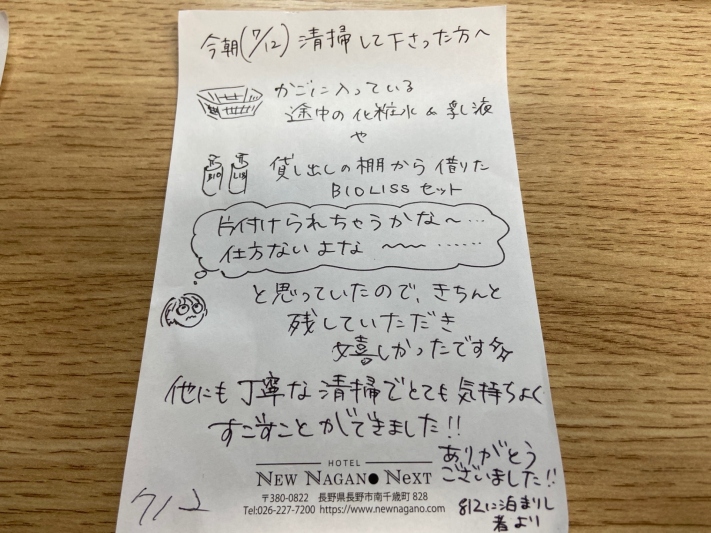 今朝(7/12)清掃して下さった方へ
かごに入っている
途中の化粧水&乳液
や
BIO
LISS
貸し出しの棚から借りた
BIOLISSセット
片付けられちゃうかな〜…
仕方ないよな〜〜……
と思っていたので、きちんと
残していただき
嬉しかったです
他にも丁寧な清掃でとても気持ちよく
すごすことができました!!
ありがとう
ございました!!
812に泊まりし
者より
HOTEL
NEW NAGANO NEXT
〒380-0822 長野県長野市南千歳町828
Tel:026-227-7200 https://www.newnagano.com
712